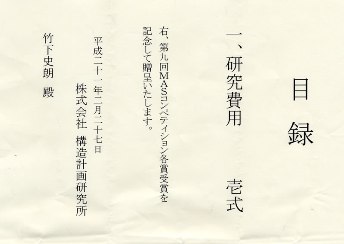 目録
一、研究費用　壱式
右、第九回MASコンペティション各賞受賞を
記念して贈呈いたします。
平成二十一年二月二十七日
株式会社 構造計画研究所
竹下史朗 殿